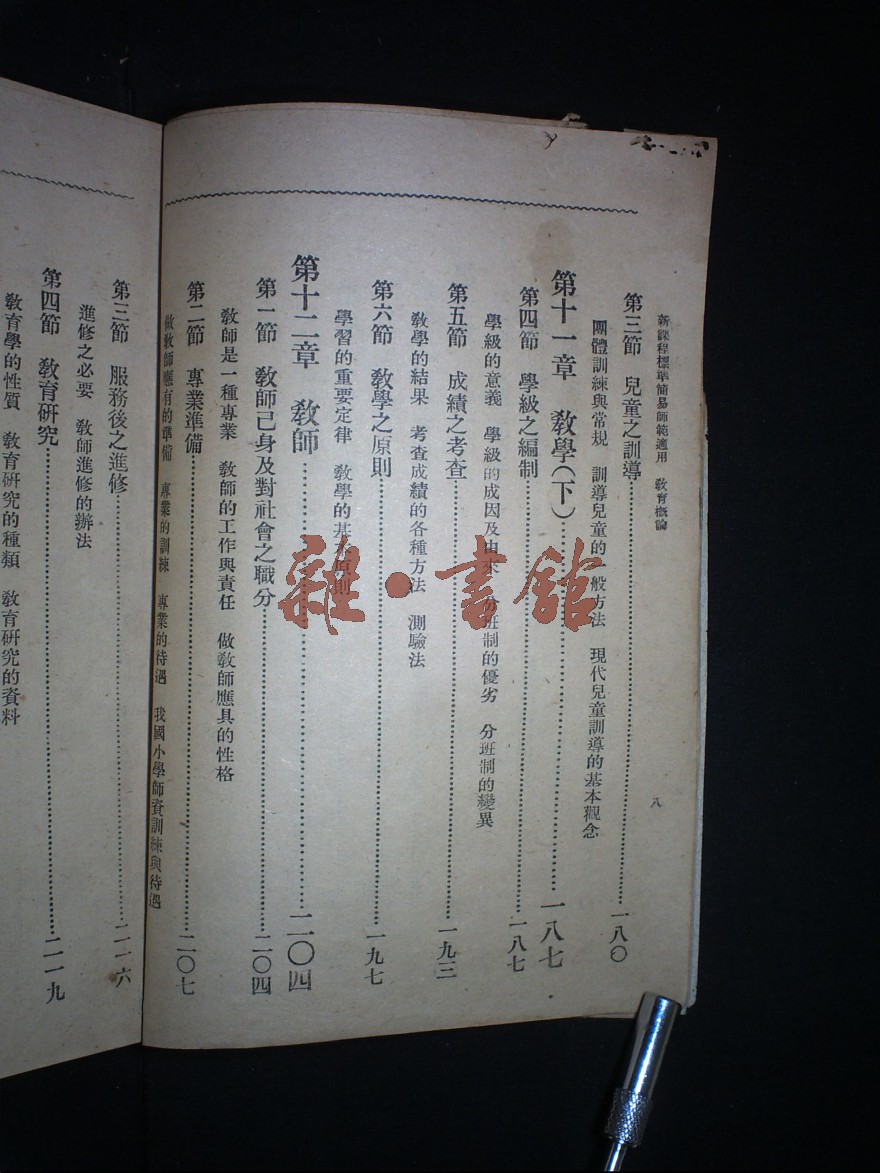 新課程標準簡易師範適用　教育概論
八
第三節　兒童之訓導……一八〇
團體訓練與常規　訓導兒童的一般方法　現代兒童訓導的基本觀念
第十一章　教學(下)……一八七
第四節　學級之編制……一八七
學級的意義　學級的成因及由來　分班制的優劣　分班制的變異
第五節　成績之考查……一九三
教學的結果　考查成績的各種方法　測驗法
第六節　教學之原則……一九七
學習的重要定律　教學的基本原則
第十二章　教師……二〇四
第一節　教師己身及對社會之職分……二〇四
教師是一種專業　教師的工作與責任　做教師應具的性格
第二節　專業準備……二〇七
做教師應有的準備　專業的訓練　專業的待遇　我國小學師資訓練與待遇
第三節　服務後之進修……二一六
進修之必要　教師進修的辦法
第四節　教育研究……二一九
教育學的性質　教育研究的種類　教育研究的資料
雜·書館